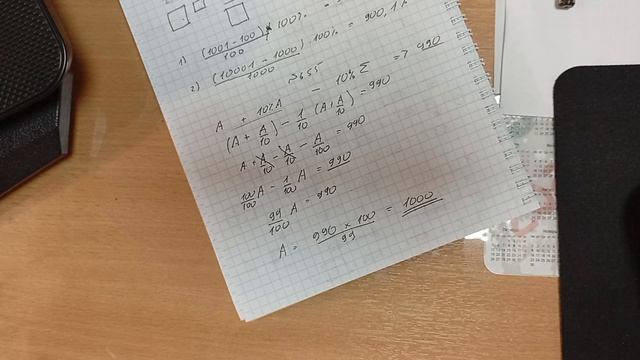 1) (1001 - 100)/100 × 100% =
2) (10001 - 1000)/1000 · 100% = 900,1%
A + 10% A - 10% Σ => 990
(A + A/10) - 1/10 (A + A/10) = 990
A + A/10 - A/10 - A/100 = 990
100/100 A - 1/100 A = 990
99/100 A = 990
A = 990 × 100/99 = 1000